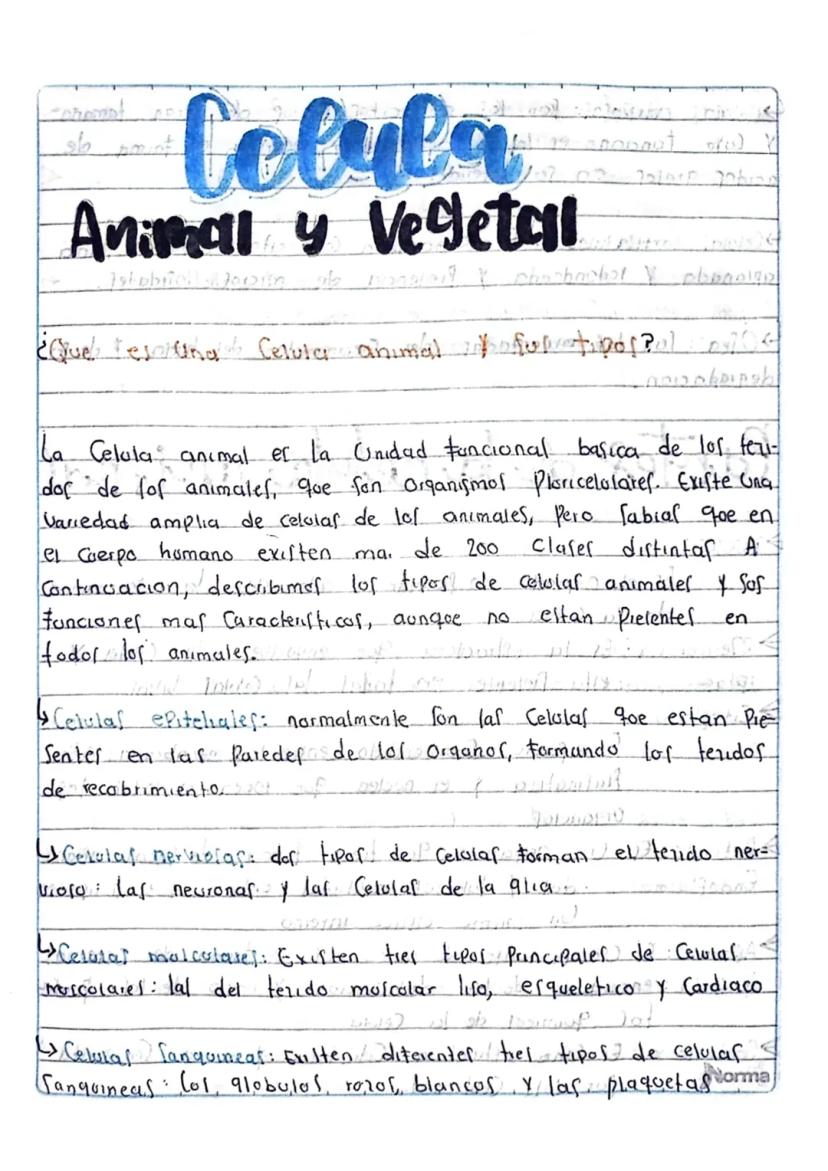 Celula
Animal y Vegetal
¿Que es una Celula animal y sus tipos?
La Celula animal es la Unidad funcional basica de los teji-
dos de los animales, que son organismos Pluricelulares. Existe una
Variedad amplia de celulas de los animales, Pero sabias que en
el Cuerpo humano existen mas de 200 clases distintas. A
Continuacion, describimos los tipos de celulas animales y sus
funciones mas Caracteristicas, aunque no estan Presentes en
todos los animales.
↳ Celulas epiteliales: normalmente son las Celulas que estan Pre-
Sentes en las Paredes de los organos, formando los tejidos
de recobrimiento.
↳ Celulas nerviosas: dos tipos de Celulas forman el tejido ner-
vioso: las neuronas y las Celulas de la glia
↳ Celulas musculares: Existen tres tipos Principales de Celulas
musculares: las del tejido muscular liso, esqueletico y Cardiaco
↳ Celulas Sanguineas: Existen diferentes tres tipos de celulas
Sanguineas: los globulos, rojos, blancos y las plaquetas
Norma